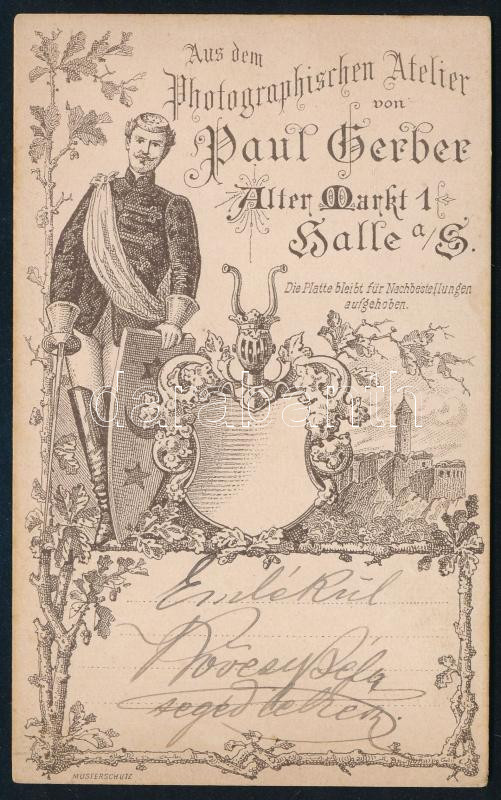 Aus dem
Photographischen Atelier
von
Paul Gerber
Alter Markt 1
Halle a/S.
Die Platte bleibt für Nachbestellungen
aufgehoben.
darabanth
Emlékül
Béla
MUSTERSCHUTZ